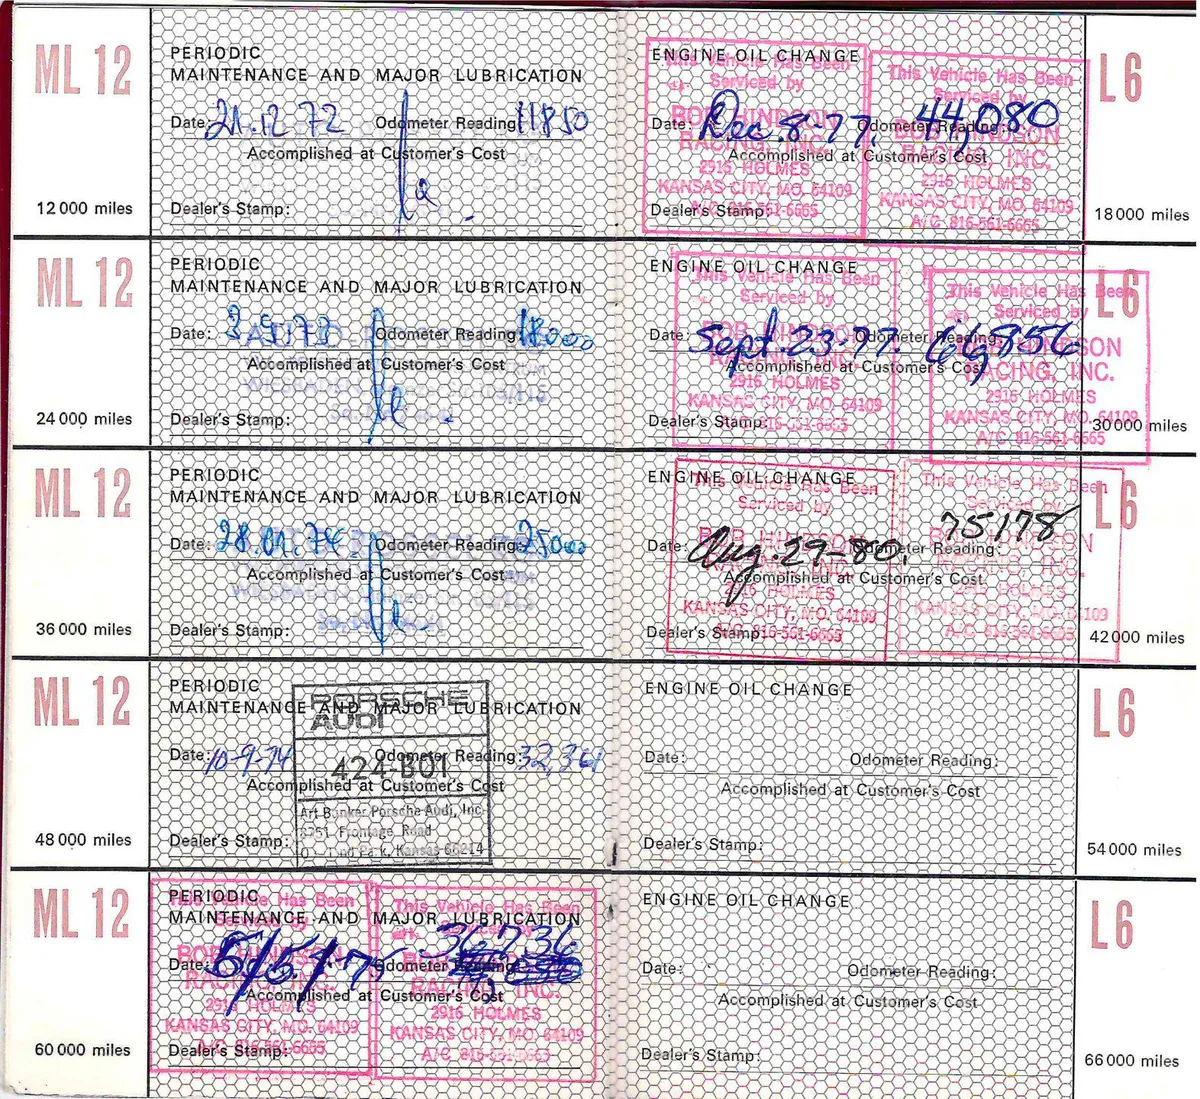 ML 12
PERIODIC
MAINTENANCE AND MAJOR LUBRICATION
Date: 21.12.72 Odometer Reading: 11850
Accomplished at Customer's Cost
12 000 miles
Dealer's Stamp:
ML 12
PERIODIC
MAINTENANCE AND MAJOR LUBRICATION
Date: 3.9.73 Odometer Reading: 18000
Accomplished at Customer's Cost
24 000 miles
Dealer's Stamp:
ML 12
PERIODIC
MAINTENANCE AND MAJOR LUBRICATION
Date: 28.01.74 Odometer Reading: 25000
Accomplished at Customer's Cost
36 000 miles
Dealer's Stamp:
ML 12
PERIODIC
MAINTENANCE AND MAJOR LUBRICATION
PORSCHE
AUDI
Date: 10-9-74 Odometer Reading: 32,361
424-B01
Accomplished at Customer's Cost
Art Bunker Porsche Audi, Inc.
Frontage Road
Park, Kansas 66214
48 000 miles
Dealer's Stamp:
ML 12
PERIODIC
MAINTENANCE AND MAJOR LUBRICATION
This Vehicle Has Been
Serviced by
BOB HINDSON
RACING, INC.
2916 HOLMES
KANSAS CITY, MO. 64109
A/C 816-561-6665
This Vehicle Has Been
Serviced by
RACING, INC.
2916 HOLMES
KANSAS CITY, MO. 64109
A/C 816-561-6665
Date: 5/5/75 Odometer Reading: 36736
Accomplished at Customer's Cost
60 000 miles
Dealer's Stamp:
ENGINE OIL CHANGE
L6
This Vehicle Has Been
Serviced by
BOB HINDSON
RACING, INC.
2916 HOLMES
KANSAS CITY, MO. 64109
A/C 816-561-6665
This Vehicle Has Been
Serviced by
BOB HINDSON
RACING, INC.
2916 HOLMES
KANSAS CITY, MO. 64109
A/C 816-561-6665
Date: Dec. 8-77. Odometer Reading: 44,080
Accomplished at Customer's Cost
Dealer's Stamp:
18 000 miles
ENGINE OIL CHANGE
L6
This Vehicle Has Been
Serviced by
BOB HINDSON
RACING, INC.
2916 HOLMES
KANSAS CITY, MO. 64109
816-561-6665
This Vehicle Has Been
Serviced by
HINDSON
RACING, INC.
2916 HOLMES
KANSAS CITY, MO. 64109
A/C 816-561-6665
Date: Sept. 23-77. Odometer Reading: 66,856
Accomplished at Customer's Cost
Dealer's Stamp:
30 000 miles
ENGINE OIL CHANGE
L6
This Vehicle Has Been
Serviced by
BOB HINDSON
RACING, INC.
2916 HOLMES
KANSAS CITY, MO. 64109
A/C 816-561-6665
This Vehicle Has Been
Serviced by
2916 HOLMES
KANSAS CITY, MO. 64109
A/C 816-561-6665
Date: Aug. 29-80. Odometer Reading: 75178
Accomplished at Customer's Cost
Dealer's Stamp:
42 000 miles
ENGINE OIL CHANGE
L6
Date: Odometer Reading:
Accomplished at Customer's Cost
Dealer's Stamp:
54 000 miles
ENGINE OIL CHANGE
L6
Date: Odometer Reading:
Accomplished at Customer's Cost
Dealer's Stamp:
66 000 miles